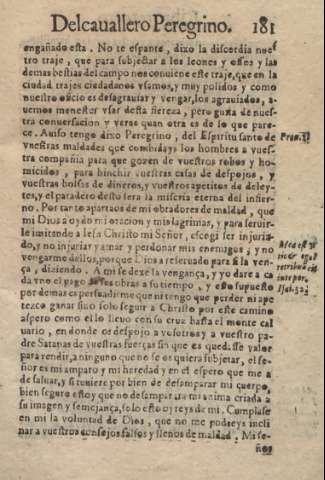 Delcauallero Peregrino. 181
engañado esta. No te espante, dixo la discordia nues
tro traje, que para subjectar a los leones y osses y las
demas bestias del campo nos conuiene este traje, que en la
ciudad trajes ciudadanos vsamos, y muy polidos y como
nuestro oficio es desagrauiar y vengar, los agrauiados, a-
uemos menester vsar desta fiereza, pero gusta de nuestra
conuersacion y veras quan otra es de lo que pare-
ce. Auiso tengo dixo Peregrino, del Espiritu santo de
vuestras maldades que combidays los hombres a vues-
tra compañia para que gozen de vuestros robos y ho-
micidos, para hinchir vuestras casas de despojos, y
vuestras bolsas de dineros, y vuestros apetitos de deley-
tes, y el paradero desto sera la miseria eterna del infier-
no. Por tanto apartaos de mi obradores de maldad, que
mi Dios a oydo mi oracion y mis lagrimas, y para seruir-
le imitando a Iesu Christo mi Señor, escogi ser injuria-
do, y no injuriar y amar y perdonar mis enemigos; y no
vengarme dellos, porque Dios a reseruado para si la ven-
ça, diziendo. A mi se dexe la vengança, y yo dare a ca
da vno el pago de sus obras a su tiempo, y esto supuesto
por demas es persuadirme que ni tengo que perder ni ape
tezco ganar sino solo seguir a Christo por este camino
aspero como ello lleuo con su cruz hasta el monte cal
uario, en donde os despojo a vosotros y a vuestro pa-
dre Satanas de vuestras fuerças sin que os quedasse valor
para rendir, a ninguno que no se os quiera subjetar, el se-
ñor es mi amparo y mi heredad y en el espero que me a
de saluar, y si tuuiere por bien de desamparar mi cuerpo,
bien seguro estoy que no desampara mi anima criada a
su imagen y semejança, solo esto oyreys de mi. Cumplase
en mi la voluntad de Dios, que no me podreys incli
nar a vuestros consejos falsos y llenos de maldad. Mi se-
ñor